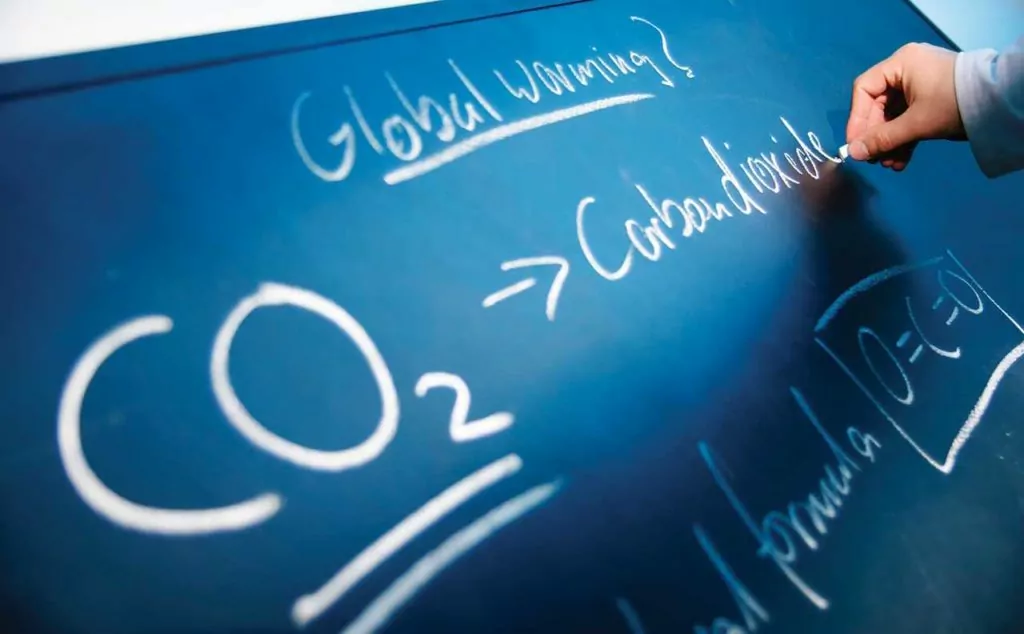 Global warming?
CO2
→ Carbondioxide
formula
O=C=O